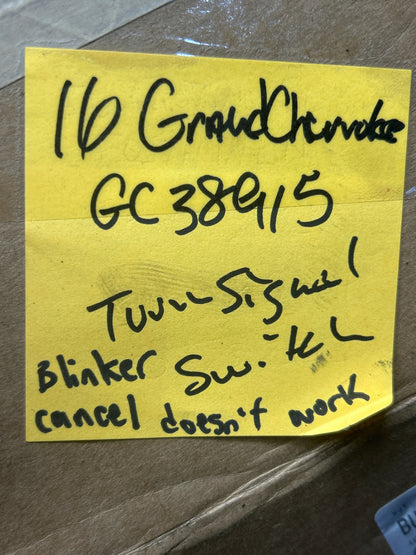 16 Grand Cherokee
GC38915
Turn Signal
Switch
Blinker
cancel doesn't work